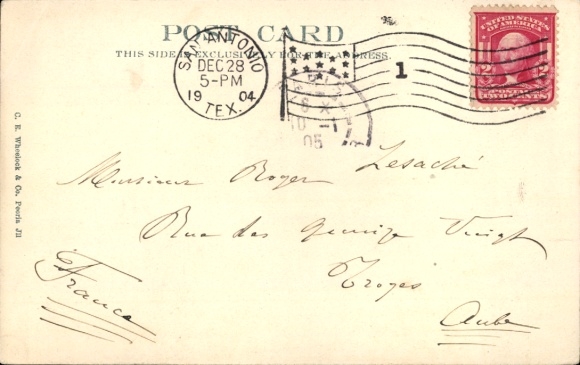 POST CARD
THIS SIDE IS EXCLUSIVELY FOR THE ADDRESS.
SAN ANTONIO
DEC 28
5-PM
1904
TEX.
1
UNITED STATES OF AMERICA
2 2
POSTAGE
TWO CENTS
10 -1
05
Monsieur Roger Lesaché
Rue des Quinze Vingt
Troyes
Aube
France
C. E. Wheelock & Co. Peoria Ill